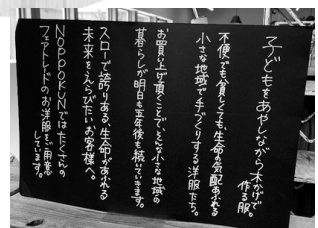 子どもをあやしながら木かげで
作る服。
不便でも貧しくても、生命の気配のある
小さな地域で手づくりする洋服たち。
お買い上げ頂くことで、そんな小さな地域の
暮らしが明日も五年後も続いていきます。
スローで誇りある、生命があふれる
未来をえらびたいお客様へ。
NOPPOKUNではたくさんの
フェアトレードのお洋服をご用意
しています。